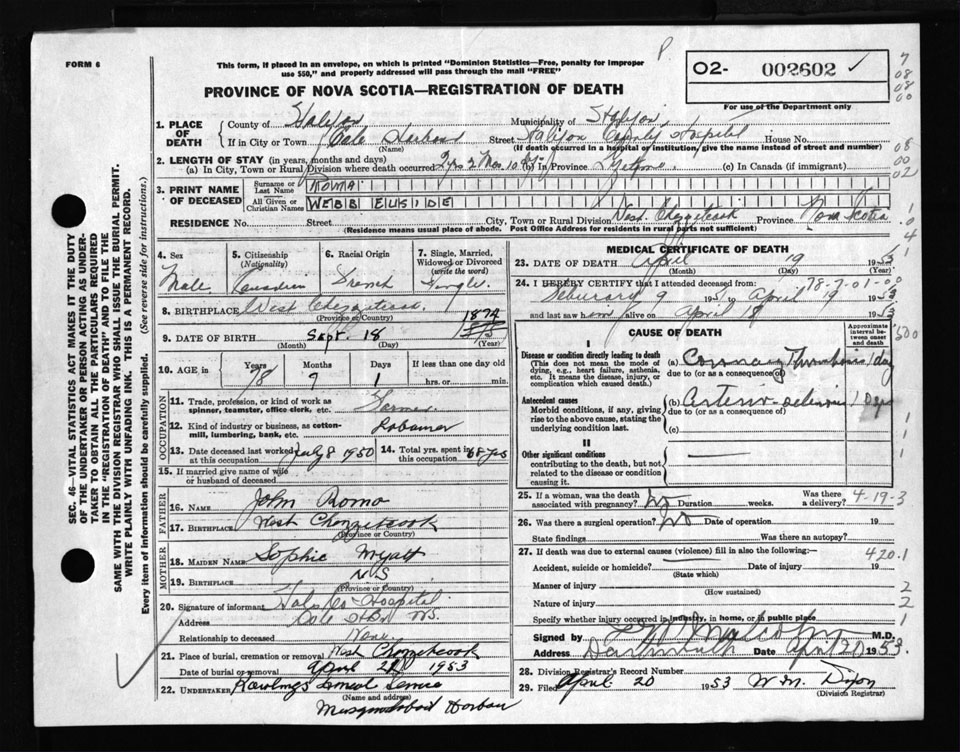 FORM 6
This form, if placed in an envelope, on which is printed "Dominion Statistics—Free, penalty for improper
use $50," and properly addressed will pass through the mail "FREE"
P
PROVINCE OF NOVA SCOTIA—REGISTRATION OF DEATH
O2- 002602 ✓
For use of the Department only
1. PLACE OF DEATH
County of Halifax Municipality of Halifax
If in City or Town Cole Harbour Street Halifax County Hospital House No.
(Name) (If death occurred in a hospital or institution, give name instead of street and number)
2. LENGTH OF STAY (in years, months and days)
(a) In City, Town or Rural Division where death occurred 2 yrs 2 Mos. 10 dys (b) In Province Lifetime (c) In Canada (if immigrant)
3. PRINT NAME OF DECEASED
Surname or Last Name ROMA
All Given or Christian Names WEBB EUSIDE
RESIDENCE No. Street City, Town or Rural Division West Chezzetcook Province Nova Scotia
(Residence means usual place of abode. Post Office Address for residents in rural parts not sufficient)
4. Sex Male
5. Citizenship (Nationality) Canadian
6. Racial Origin French
7. Single, Married, Widowed or Divorced (write the word) Single
8. BIRTHPLACE West Chezzetcook
(Province or Country)
1874
9. DATE OF BIRTH Sept. 18
(Month) (Day) (Year)
10. AGE in Years Months Days If less than one day
78 7 1 hrs. or min.
OCCUPATION
11. Trade, profession, or kind of work as spinner, teamster, office clerk, etc. Farmer
12. Kind of industry or business, as cotton-mill, lumbering, bank, etc. Labourer
13. Date deceased last worked at this occupation July 8 1950
14. Total yrs. spent in this occupation 68 yrs
15. If married give name of wife or husband of deceased
FATHER
16. Name John Romo
17. Birthplace West Chezzetcook
(Province or Country)
MOTHER
18. Maiden Name Sophie Myatt
19. Birthplace N S
(Province or Country)
20. Signature of informant Halifax Co Hospital
Address Cole Hbr NS.
Relationship to deceased None
21. Place of burial, cremation or removal West Chezzetcook
Date of burial or removal April 1953
22. UNDERTAKER Rawlings Funeral Service
(Name and address)
Musquodoboit Harbour
MEDICAL CERTIFICATE OF DEATH
23. DATE OF DEATH April 19 1953
(Month) (Day) (Year)
24. I HEREBY CERTIFY that I attended deceased from: 78-7-01-00
February 9 1951 to April 19 1953
and last saw him alive on April 18 1953
CAUSE OF DEATH
Approximate interval between onset and death
I
Disease or condition directly leading to death
(This does not mean the mode of dying, e.g., heart failure, asthenia, etc. It means the disease, injury, or complication which caused death.
(a) Coronary Thrombosis 1 day
due to (or as a consequence of)
Antecedent causes
Morbid conditions, if any, giving rise to the above cause, stating the underlying condition last.
(b) Arterio-sclerosis
due to (or as a consequence of)
(c)
II
Other significant conditions
contributing to the death, but not related to the disease or condition causing it.
25. If a woman, was the death associated with pregnancy? No Duration weeks. Was there a delivery? 4-19-3
26. Was there a surgical operation? No Date of operation 19
State findings Was there an autopsy?
27. If death was due to external causes (violence) fill in also the following: 420.1
Accident, suicide or homicide? Date of injury 19
(State which)
Manner of injury
(How sustained)
Nature of injury
Specify whether injury occurred in industry, in home, or in public place
Signed by Malcolm M.D.
Address Dartmouth Date April 20 1953
28. Division Registrar's Record Number
29. Filed April 20 1953 W.M. Dixon
(Division Registrar)
SEC. 46—VITAL STATISTICS ACT MAKES IT THE DUTY
OF THE UNDERTAKER OR PERSON ACTING AS UNDER-
TAKER TO OBTAIN ALL THE PARTICULARS REQUIRED
IN THE "REGISTRATION OF DEATH" AND TO FILE THE
SAME WITH THE DIVISION REGISTRAR WHO SHALL ISSUE THE BURIAL PERMIT.
WRITE PLAINLY WITH UNFADING INK. THIS IS A PERMANENT RECORD.
Every item of information should be carefully supplied. (See reverse side for instructions.)